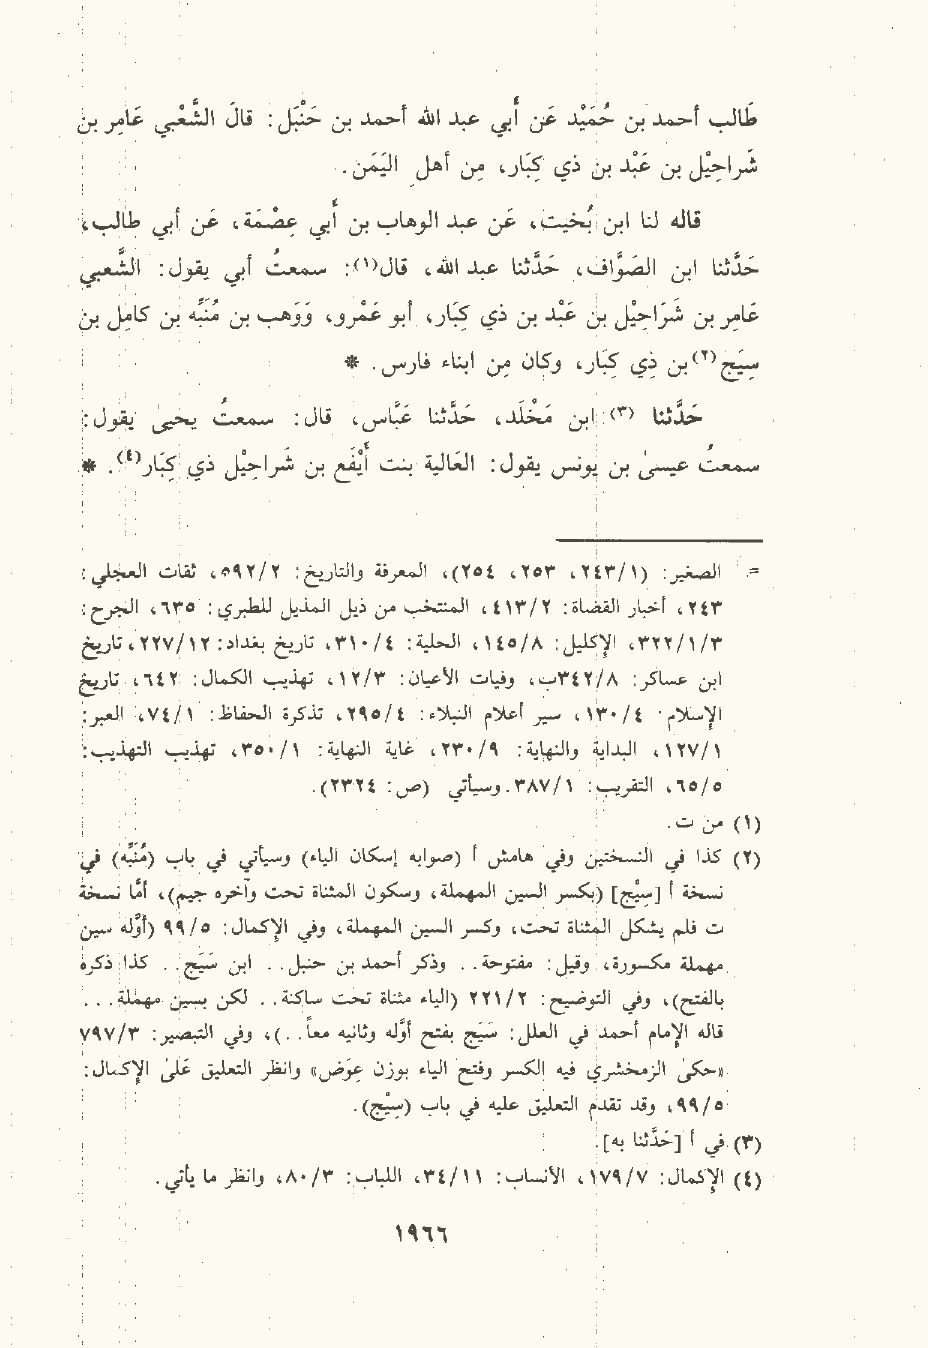 طَالب أحمد بن حُمَيْد عَن أَبي عبد الله أحمد بن حَنْبَل: قالَ الشَّعْبي عَامِر بن
شَراحِيْل بن عَبْد بن ذي كِبَار، مِن أهل اليَمَن.
قاله لنا ابن بُخيت، عَن عبد الوهاب بن أَبي عِصْمَة، عَن أبي طالب،
حَدَّثنا ابن الصَوَّاف، حَدَّثنا عبد الله، قال(١): سمعتُ أبي يقول: الشَّعبي
عَامِر بن شَرَاحِيْل بن عَبْد بن ذي كِبَار، أبو عَمْرو، وَوَهب بن مُنَبِّه بن كامِل بن
سِيَج(٢) بن ذي كِبَار، وكان مِن ابناء فارس. *
حَدَّثنا (٣) ابن مَخْلَد، حَدَّثنا عَبَّاس، قال: سمعتُ يحيىٰ يقول:
سمعتُ عيسىٰ بن يونس يقول: العَالية بنت أَيْفَع بن شَراحِيْل ذي كِبَار(٤). *
= الصغير: (٢٤٣/١، ٢٥٣، ٢٥٤)، المعرفة والتاريخ: ٥٩٢/٢، ثقات العجلي:
٢٤٣، أخبار القضاة: ٤١٣/٢، المنتخب من ذيل المذيل للطبري: ٦٣٥، الجرح:
٣٢٢/١/٣، الإكليل: ١٤٥/٨، الحلية: ٣١٠/٤، تاريخ بغداد: ٢٢٧/١٢، تاريخ
ابن عساكر: ٣٤٢/٨ب، وفيات الأعيان: ١٢/٣، تهذيب الكمال: ٦٤٢، تاريخ
الإسلام: ١٣٠/٤، سير أعلام النبلاء: ٢٩٥/٤، تذكرة الحفاظ: ٧٤/١، العبر:
١٢٧/١، البداية والنهاية: ٢٣٠/٩، غاية النهاية: ٣٥٠/١، تهذيب التهذيب:
٦٥/٥، التقريب: ٣٨٧/١. وسيأتي (ص: ٢٣٢٤).
(١) من ت.
(٢) كذا في النسختين وفي هامش أ (صوابه إسكان الياء) وسيأتي في باب (مُنَبِّه) في
نسخة أ [سِيْج] (بكسر السين المهملة، وسكون المثناة تحت وآخره جيم)، أمَّا نسخة
ت فلم يشكل المثناة تحت، وكسر السين المهملة، وفي الإكمال: ٩٩/٥ (أوَّله سين
مهملة مكسورة، وقيل: مفتوحة.. وذكر أحمد بن حنبل.. ابن سَيَج.. كذا ذكره
بالفتح)، وفي التوضيح: ٢٢١/٢ (الياء مثناة تحت ساكنة.. لكن بسين مهملة...
قاله الإمام أحمد في العلل: سَيَج بفتح أوَّله وثانيه معاً..)، وفي التبصير: ٧٩٧/٣
«حكىٰ الزمخشري فيه الكسر وفتح الياء بوزن عِوَض» وانظر التعليق عَلىٰ الإكمال:
٩٩/٥، وقد تقدم التعليق عليه في باب (سِيْج).
(٣) في أ [حَدَّثنا به].
(٤) الإكمال: ١٧٩/٧، الأنساب: ٣٤/١١، اللباب: ٨٠/٣، وانظر ما يأتي.
١٩٦٦